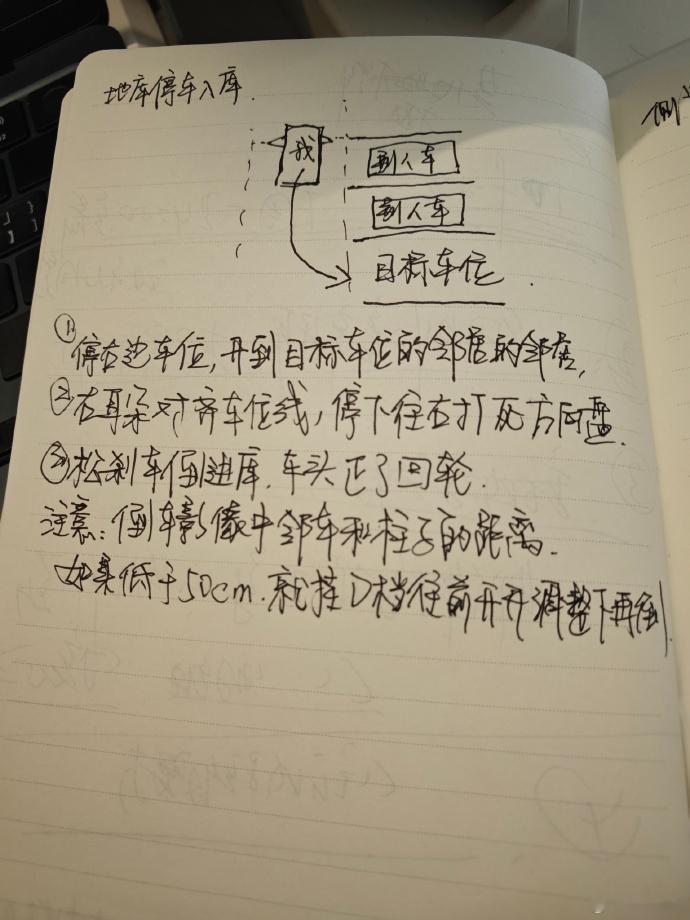 地库停车入库.
我
别人车
别人车
目标车位
①停右边车位,开到目标车位的邻居的邻居,
②右耳朵对齐车位线,停下往右打死方向盘.
③松刹车倒进库.车头正了回轮.
注意:倒车影像中邻车和柱子的距离.
如果低于50cm.就挂D档往前开开调整下再倒.